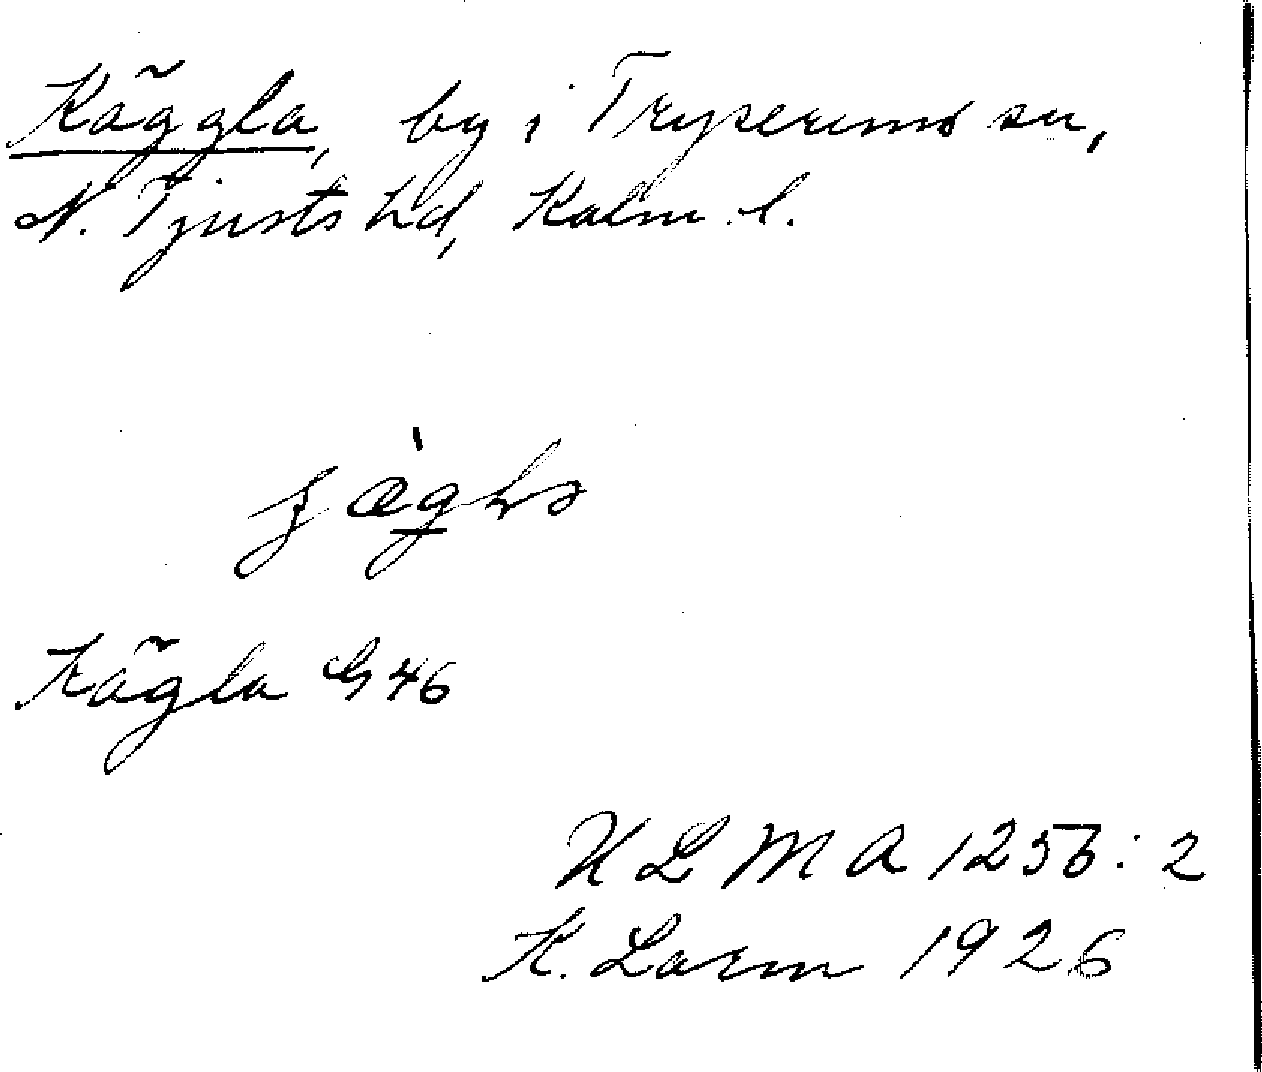 Käggla, by i Tryserums sn,
N. Tjusts hd, Kalm. l.
Kägla G 46
ULMA 1256:2
K. Larm 1926